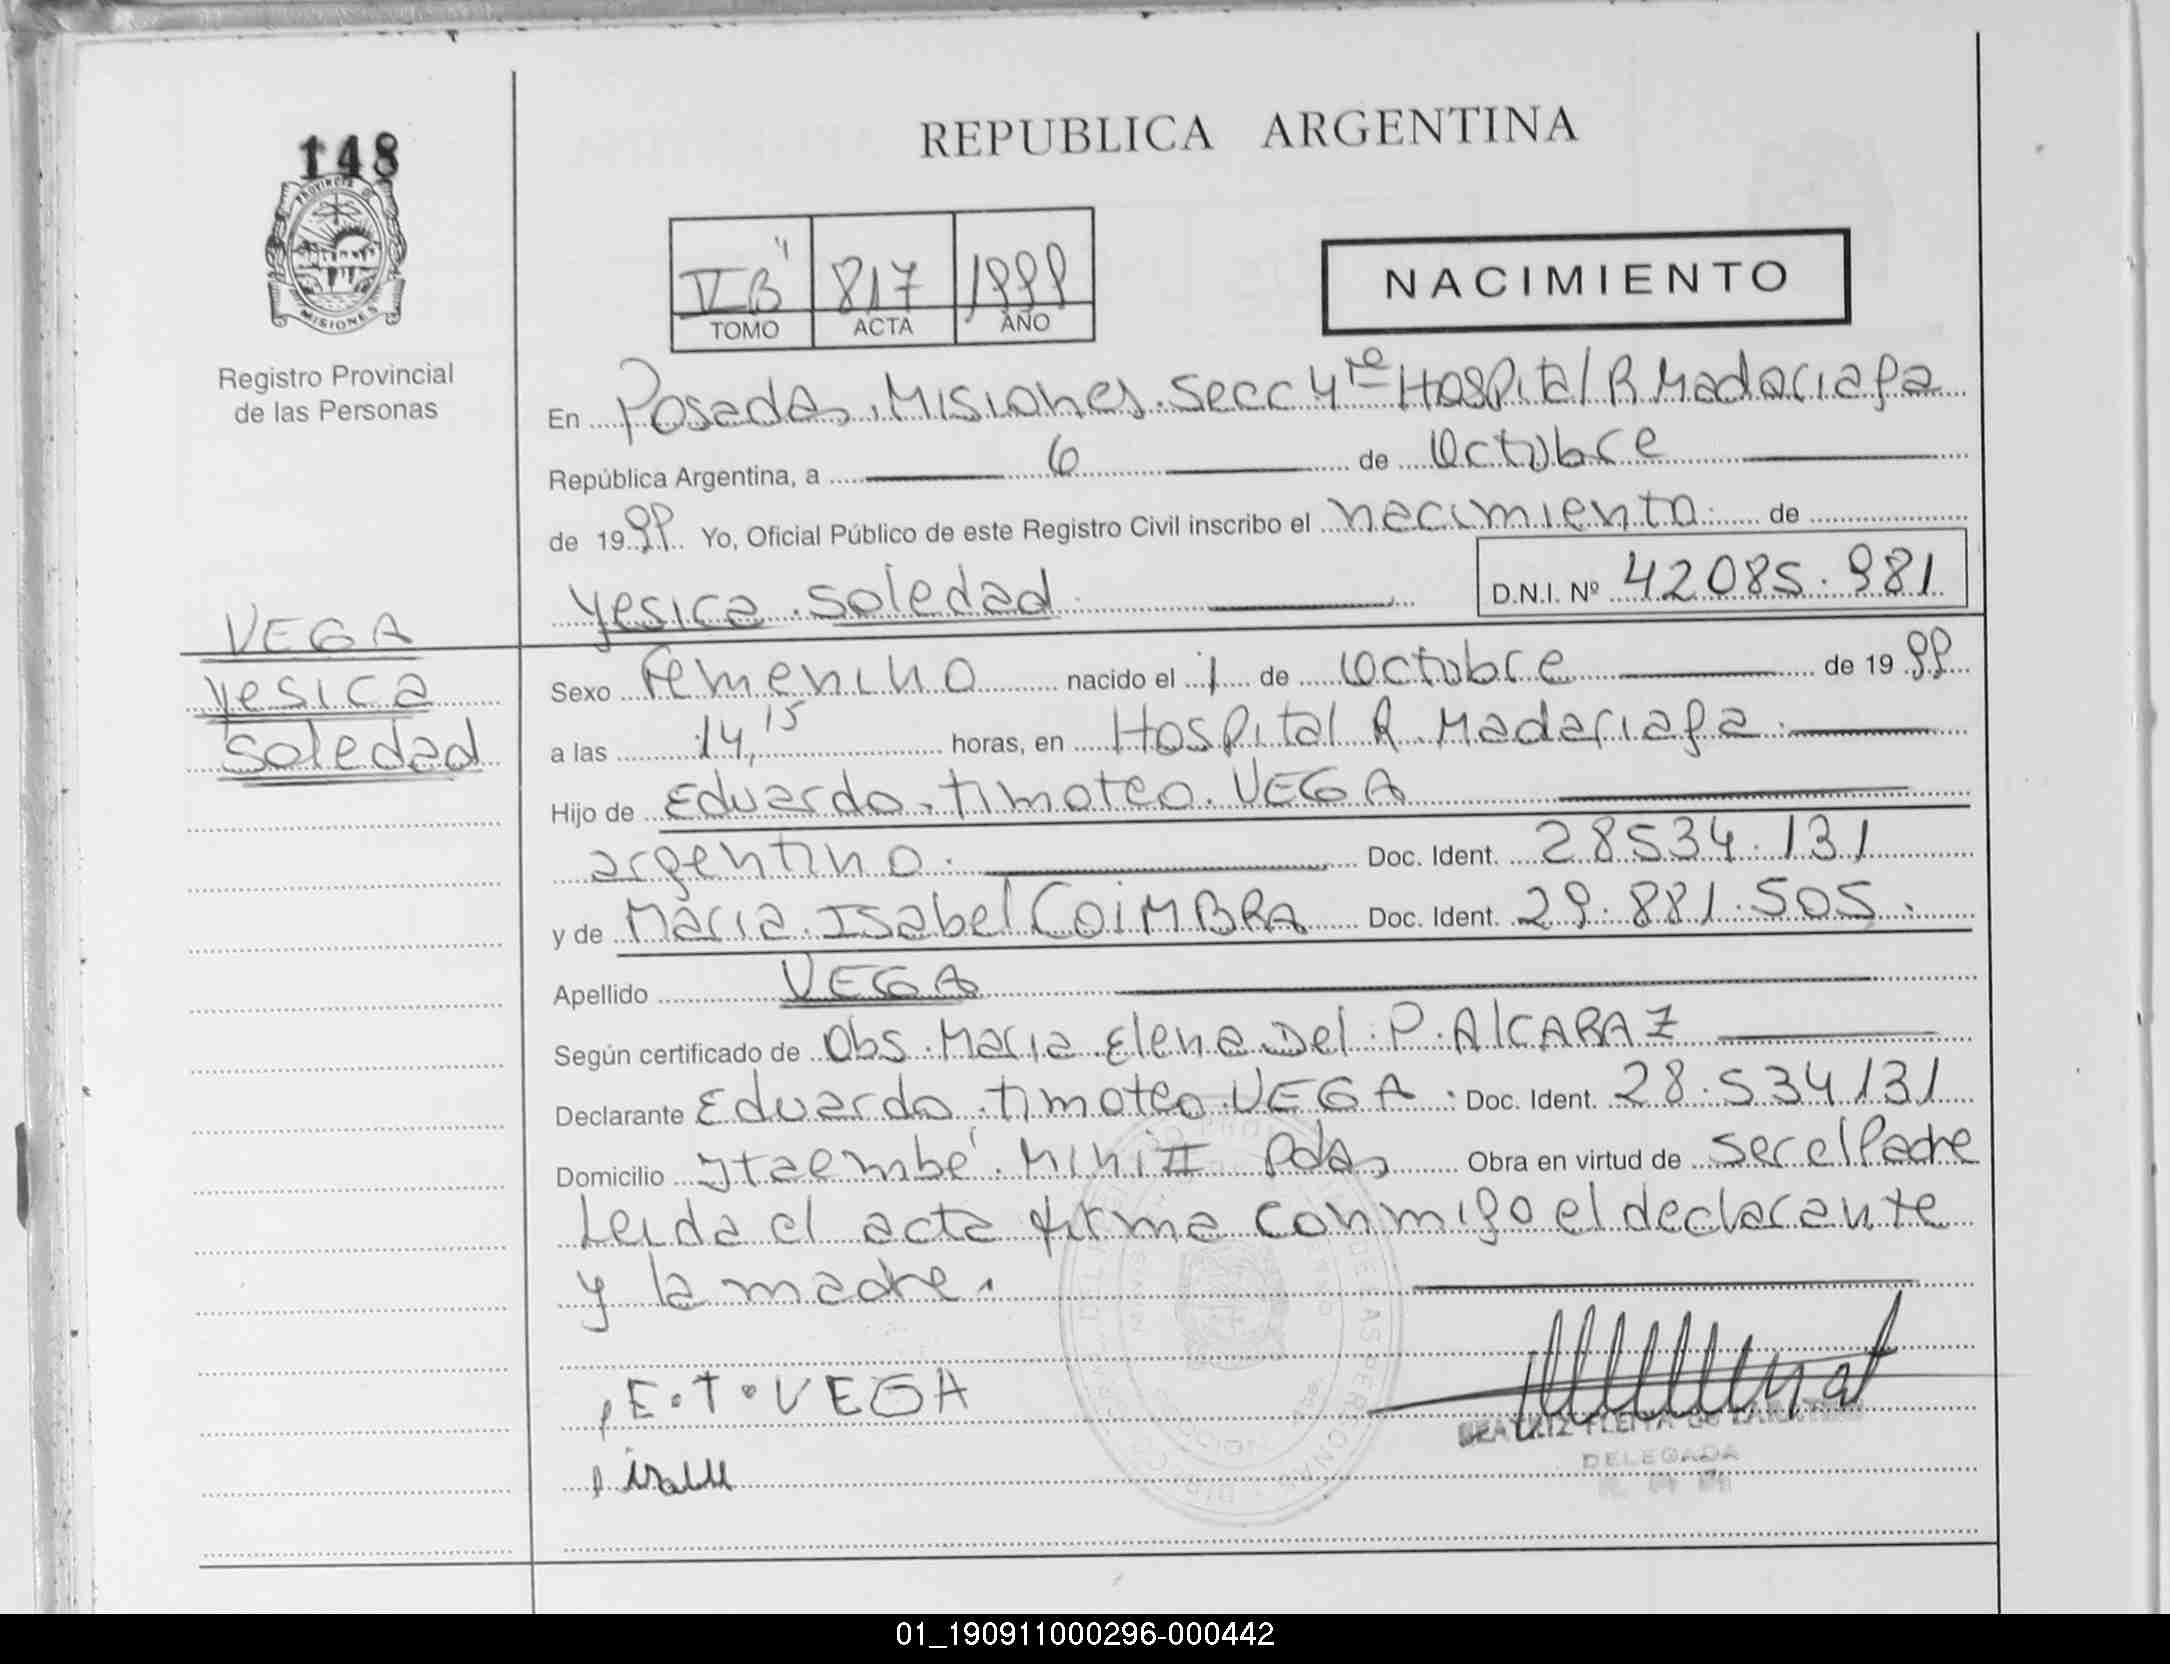 148
REPUBLICA ARGENTINA
PROVINCIA DE
MISIONES
Registro Provincial
de las Personas
V"B" 817 1999
TOMO ACTA AÑO
NACIMIENTO
En Posadas, Misiones. Secc 4ta Hospital R Madariaga
República Argentina, a 6 de Octubre
de 1999. Yo, Oficial Público de este Registro Civil inscribo el necimiento de
Yesica Soledad D.N.I. Nº 42085.981
VEGA
Yesica
Soledad
Sexo Femenino nacido el 1 de Octubre de 1999
a las 14,15 horas, en Hospital R. Madariaga.
Hijo de Eduardo Timoteo VEGA
argentino. Doc. Ident. 28534.131
y de Maria Isabel COIMBRA Doc. Ident. 29.881.505.
Apellido VEGA
Según certificado de Obs. Maria Elena Del P. AlCARAZ
Declarante Eduardo Timoteo VEGA. Doc. Ident. 28.534131
Domicilio Itaembé Mini II Pdas Obra en virtud de ser el Padre
Leida el acta firma conmigo el declarante
y la madre.
E.T.VEGA
DELEGADA
01_190911000296-000442